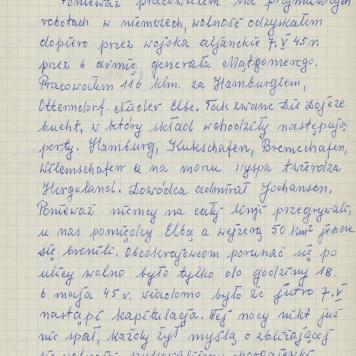 Ponieważ pracowałem na przymusowych
robotach w niemczech, wolność odzyskałem
dopiero przez wojska aljanckie 7.V 45 r.
przez 6 armię generała Matgomerego.
Pracowałem 116 klm. za Hamburgiem,
Otterndorf-Nieder Elbe. Tak zwane Die Dojcze
bucht, w który skład wchodziły następują-
porty. Hamburg, Kukshafen, Bremerhafen,
Wilemshafen a na morzu wyspa twierdza
Helgoland. Dowódca admirał Johanson.
Ponieważ niemcy na całej linji przegrywali,
u nas pomiędzy Elbą a Wezerą 50 km² jeszcze
się bronili. Obcokrajowcom poruszać się po
ulicy wolno było tylko do godziny 18.
6 maja 45 r. wiadomo było że jutro 7.V
nastąpi kapitulacja. Tej nocy nikt już
nie spał, każdy żył myślą o zbliżającej
się wolności